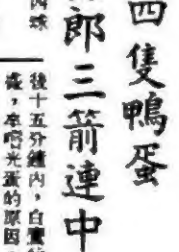 四隻鴨蛋
郎三箭連中
後十五分鐘內,白鷹
,卒啃光蛋的原因
球